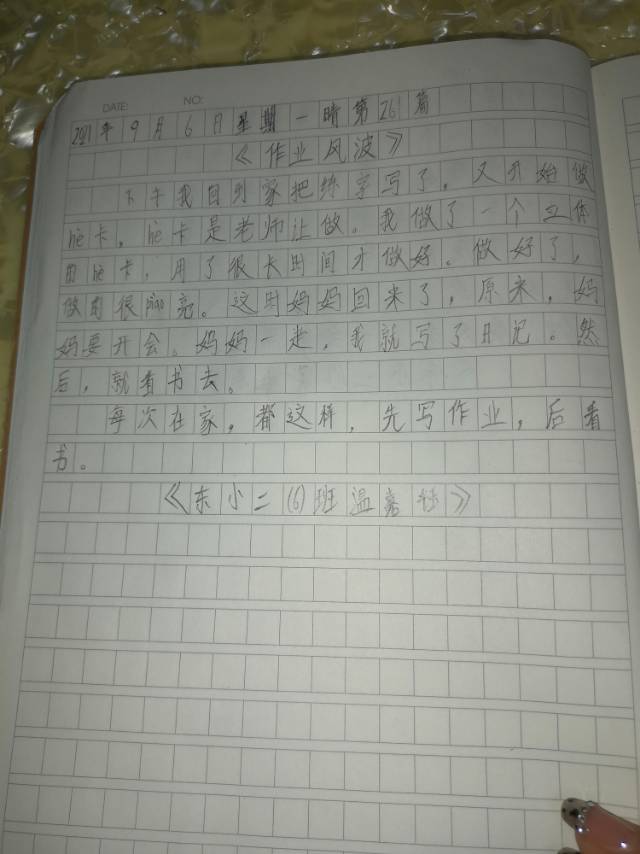 DATE: NO:
2021年9月6日星期一晴第261篇
《作业风波》
下午我回到家把练字写了,又开始做
hè卡,hè卡是老师让做。我做了一个立体
的hè卡,用了很长时间才做好。做好了,
做的很piào亮。这时妈妈回来了,原来,妈
妈要开会。妈妈一走,我就写了日记。然
后,就看书去。
每次在家,都这样,先写作业,后看
书。
《东小二(6)班温